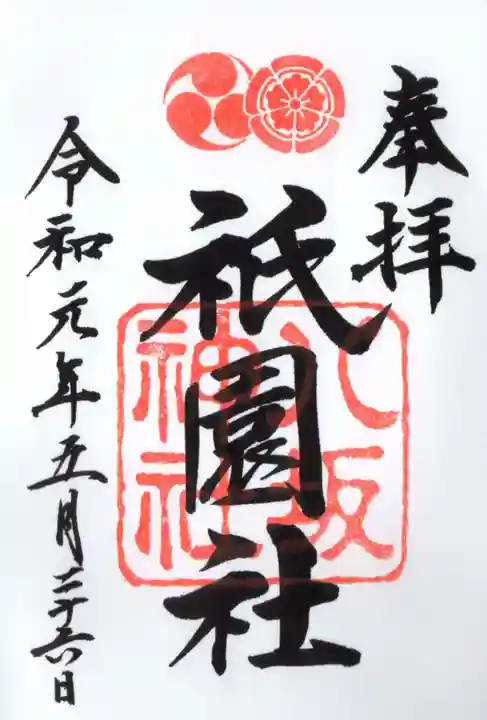 奉拝
祇園社
八坂
神社
令和元年五月二十六日